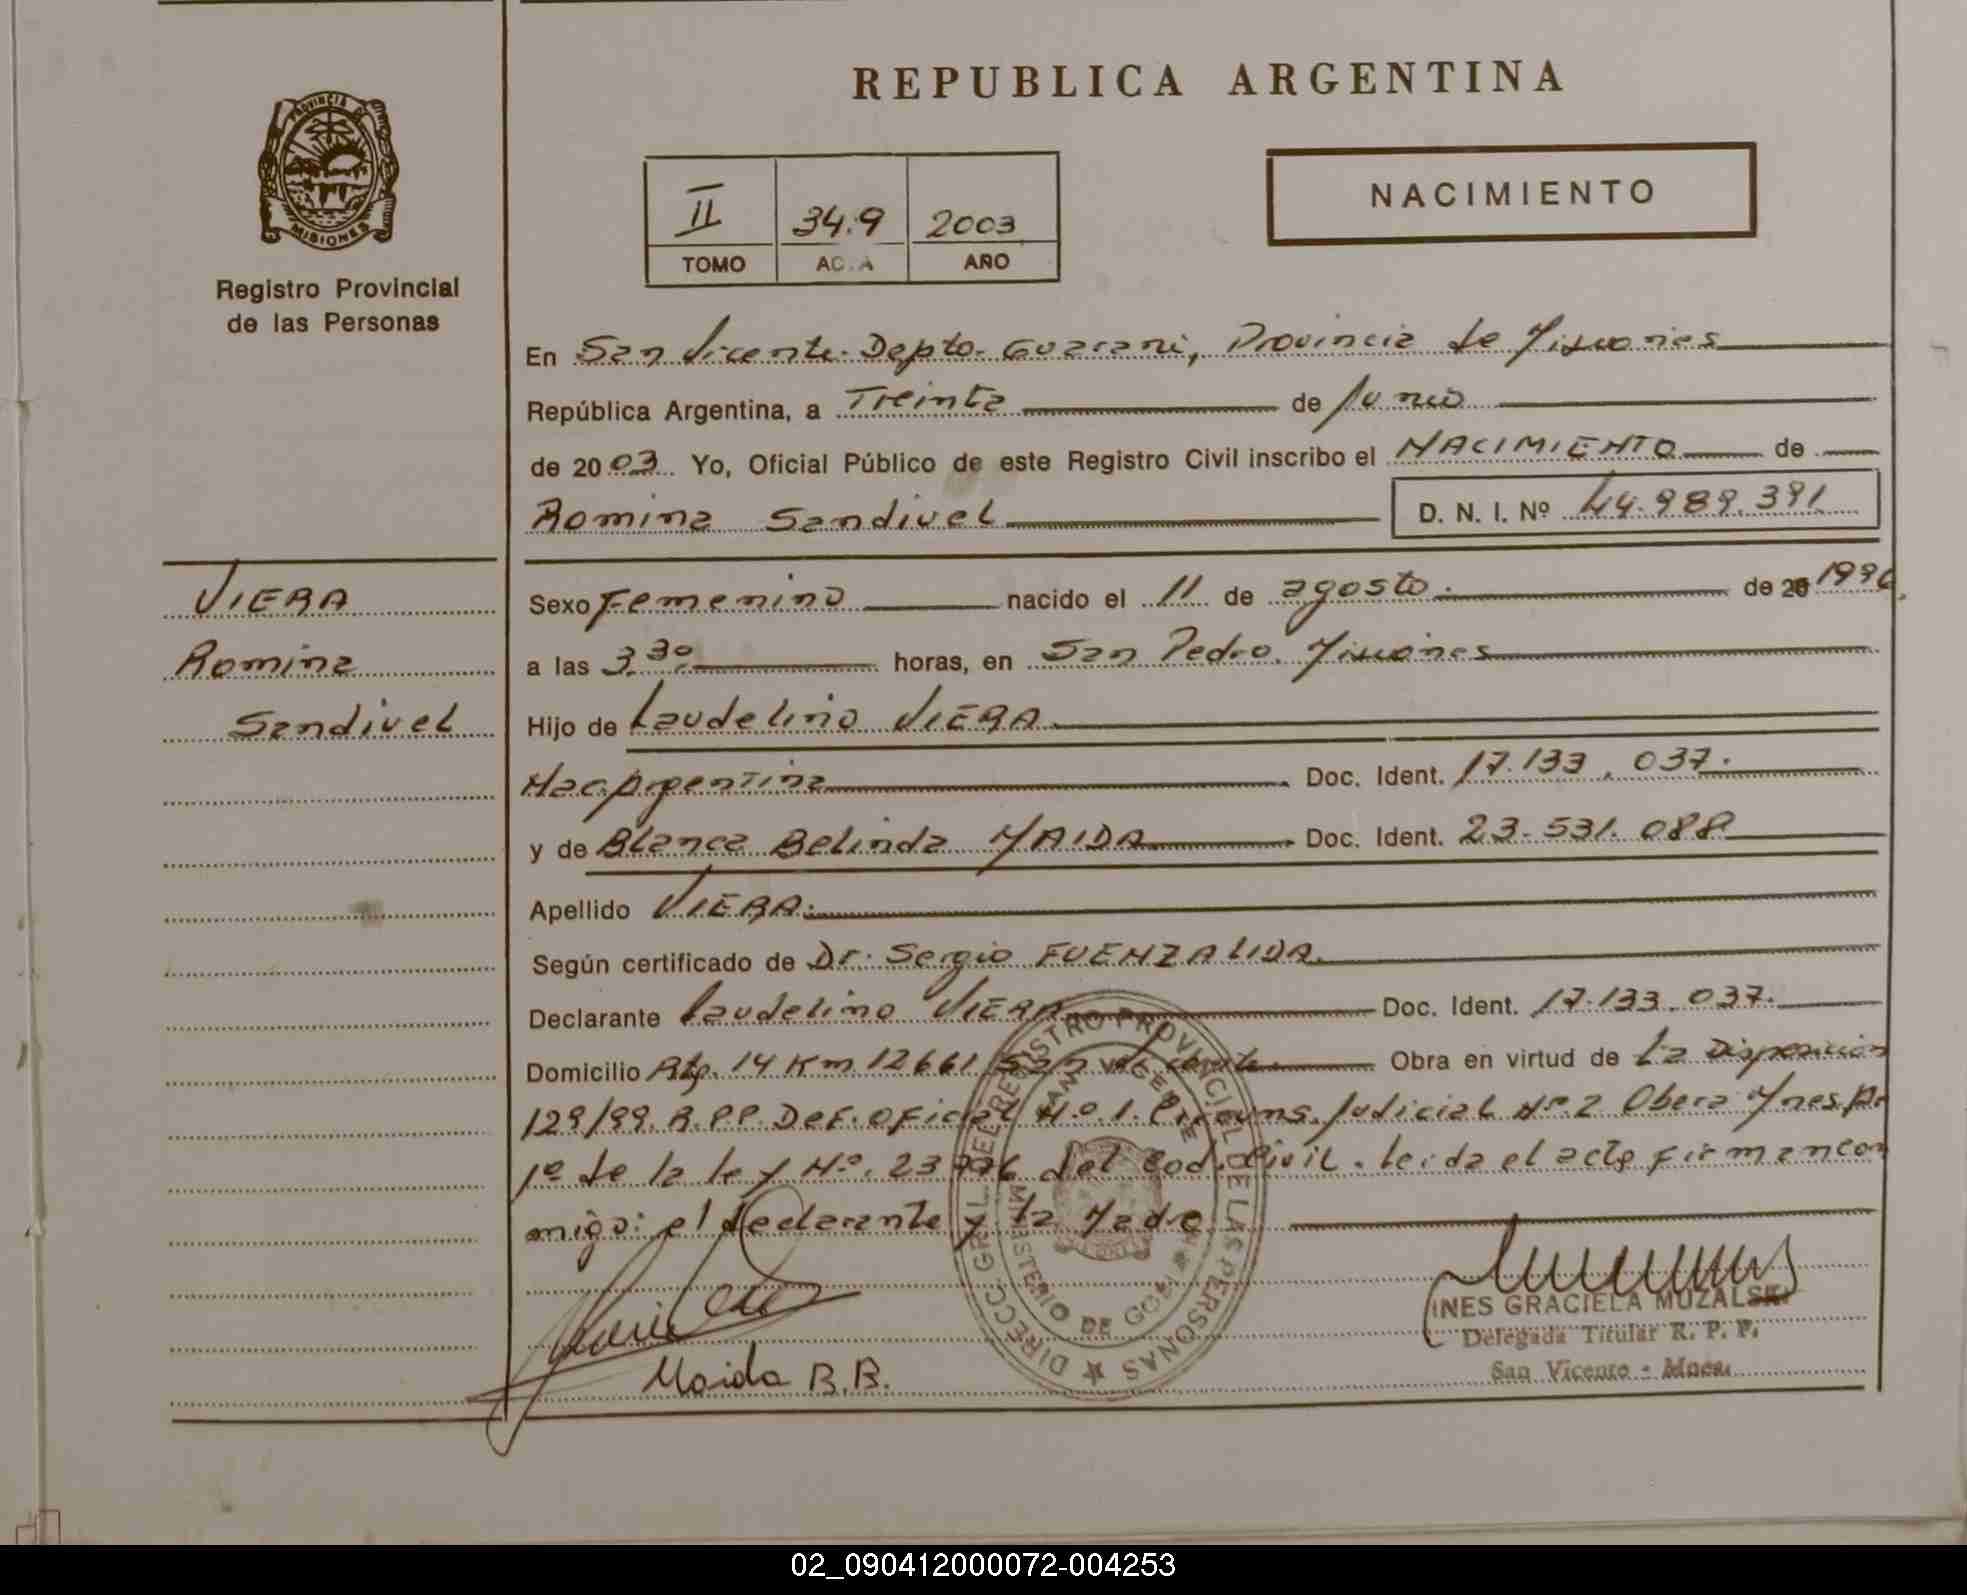 REPUBLICA ARGENTINA
PROVINCIA DE MISIONES
Registro Provincial
de las Personas
II 349 2003
TOMO AC A AÑO
NACIMIENTO
En San Vicente. Depto. Guarani, Provincia de Misiones
República Argentina, a Treinta de Junio
de 2003. Yo, Oficial Público de este Registro Civil inscribo el NACIMIENTO de
Romina Sandivel D. N. I. Nº 44.989.391
VIERA
Romina
Sandivel
Sexo Femenino nacido el 11 de agosto. de 20 1996.
a las 3.30 horas, en San Pedro. Misiones
Hijo de Laudelino VIERA.
Nac. Argentina. Doc. Ident. 17.133.037.
y de Blanca Belinda MAIDA Doc. Ident. 23.531.088
Apellido VIERA.
Según certificado de Dr. Sergio FUENZALIDA.
Declarante Laudelino VIERA Doc. Ident. 17.133.037.
Domicilio Rta. 14 Km 1266 San Vicente. Obra en virtud de La Disposicion
129/99. R.P.P. Def. Oficial N.o 1. Circuns. Judicial Nº 2 Obera Mnes.
1º de la ley Nº. 23 del Cod. Civil. Leida el acta firman con
migo: el declarante y la Madre
Maida B.B.
DIRECC. GRAL. DEL REGISTRO PROVINCIAL DE LAS PERSONAS
SAN VICENTE
MINISTERIO DE GOB
INES GRACIELA MUZALSKI
Delegada Titular R. P. P.
San Vicente - Mnes.
02_090412000072-004253